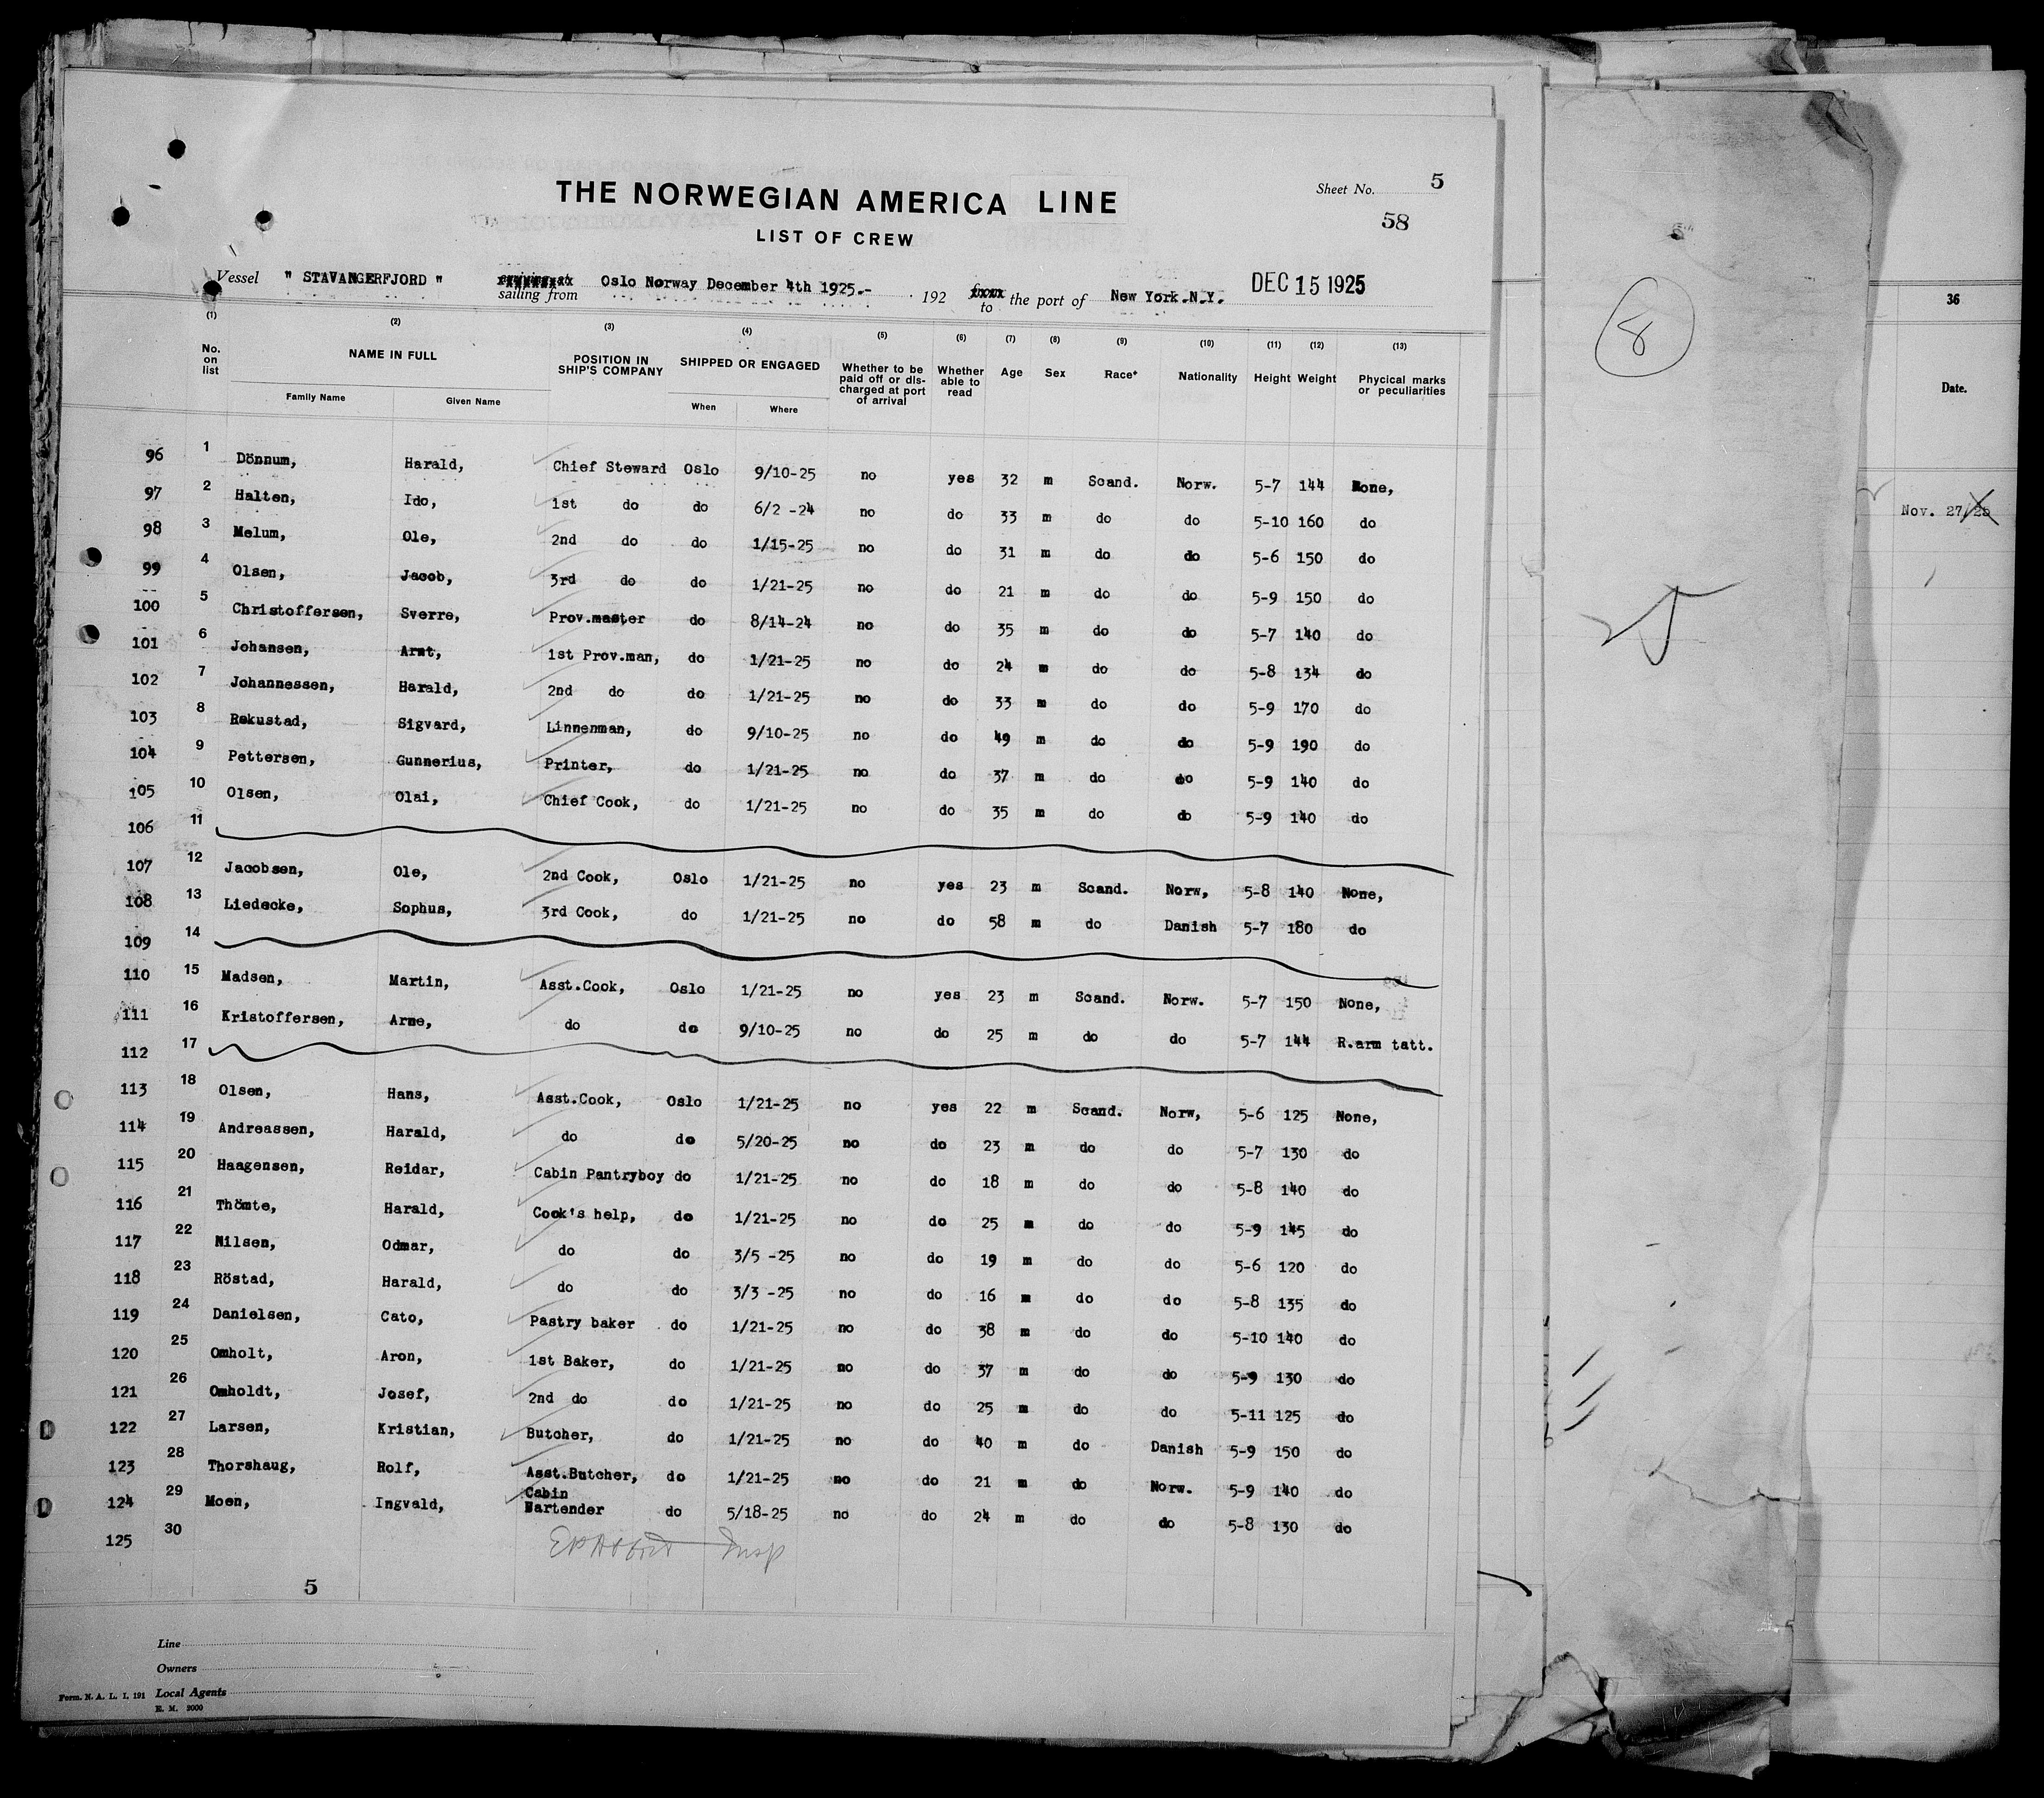 Sheet No. 5
58
THE NORWEGIAN AMERICA LINE
LIST OF CREW
Vessel " STAVANGERFJORD " sailing from Oslo Norway December 4th 1925.- 192 to the port of New York.N.Y. DEC 15 1925
(1) (2) (3) (4) (5) (6) (7) (8) (9) (10) (11) (12) (13)
No. on list NAME IN FULL POSITION IN SHIP'S COMPANY SHIPPED OR ENGAGED Whether to be paid off or dis-charged at port of arrival Whether able to read Age Sex Race* Nationality Height Weight Phycical marks or peculiarities
Family Name Given Name When Where
96 1 Dönnum, Harald, Chief Steward Oslo 9/10-25 no yes 32 m Scand. Norw. 5-7 144 None,
97 2 Halten, Ido, 1st do do 6/2 -24 no do 33 m do do 5-10 160 do
98 3 Melum, Ole, 2nd do do 1/15-25 no do 31 m do do 5-6 150 do
99 4 Olsen, Jacob, 3rd do do 1/21-25 no do 21 m do do 5-9 150 do
100 5 Christoffersen, Sverre, Prov.master do 8/14-24 no do 35 m do do 5-7 140 do
101 6 Johansen, Arnt, 1st Prov.man, do 1/21-25 no do 24 m do do 5-8 134 do
102 7 Johannessen, Harald, 2nd do do 1/21-25 no do 33 m do do 5-9 170 do
103 8 Rekustad, Sigvard, Linnenman, do 9/10-25 no do 49 m do do 5-9 190 do
104 9 Pettersen, Gunnerius, Printer, do 1/21-25 no do 37 m do do 5-9 140 do
105 10 Olsen, Olai, Chief Cook, do 1/21-25 no do 35 m do do 5-9 140 do
106 11
107 12 Jacobsen, Ole, 2nd Cook, Oslo 1/21-25 no yes 23 m Scand. Norw, 5-8 140 None,
108 13 Liedecke, Sophus, 3rd Cook, do 1/21-25 no do 58 m do Danish 5-7 180 do
109 14
110 15 Madsen, Martin, Asst.Cook, Oslo 1/21-25 no yes 23 m Scand. Norw. 5-7 150 None,
111 16 Kristoffersen, Arne, do do 9/10-25 no do 25 m do do 5-7 144 R.arm tatt.
112 17
113 18 Olsen, Hans, Asst.Cook, Oslo 1/21-25 no yes 22 m Scand. Norw, 5-6 125 None,
114 19 Andreassen, Harald, do do 5/20-25 no do 23 m do do 5-7 130 do
115 20 Haagensen, Reidar, Cabin Pantryboy do 1/21-25 no do 18 m do do 5-8 140 do
116 21 Thömte, Harald, Cook's help, do 1/21-25 no do 25 m do do 5-9 145 do
117 22 Nilsen, Odmar, do do 3/5 -25 no do 19 m do do 5-6 120 do
118 23 Röstad, Harald, do do 3/3 -25 no do 16 m do do 5-8 135 do
119 24 Danielsen, Cato, Pastry baker do 1/21-25 no do 38 m do do 5-10 140 do
120 25 Omholt, Aron, 1st Baker, do 1/21-25 no do 37 m do do 5-9 130 do
121 26 Omholdt, Josef, 2nd do do 1/21-25 no do 25 m do do 5-11 125 do
122 27 Larsen, Kristian, Butcher, do 1/21-25 no do 40 m do Danish 5-9 150 do
123 28 Thorshaug, Rolf, Asst.Butcher, do 1/21-25 no do 21 m do Norw. 5-9 140 do
124 29 Moen, Ingvald, Cabin Bartender do 5/18-25 no do 24 m do do 5-8 130 do
125 30
Insp
5
Line
Owners
Form. N. A. L. I. 191 Local Agents
E. M. 2000
8
36
Date.
Nov. 27/25